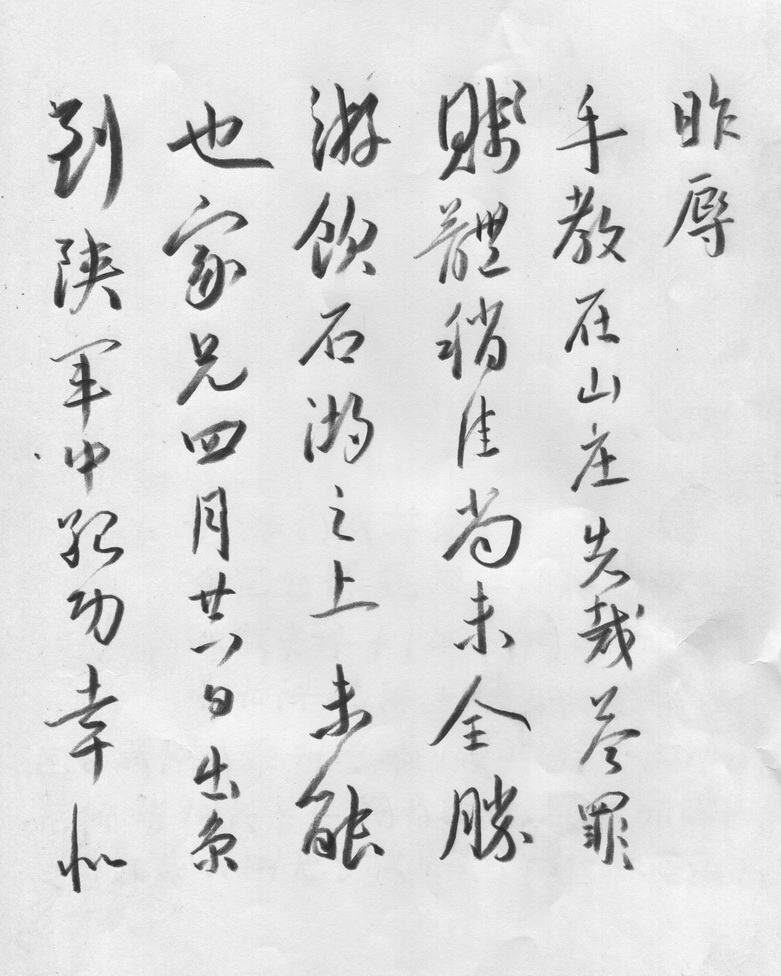 昨辱
手教在山庄失裁答罪
賤體稍佳尚未全勝
游飲石湖之上未能
也家兄四月廿六日出京
到陝軍中紀功幸